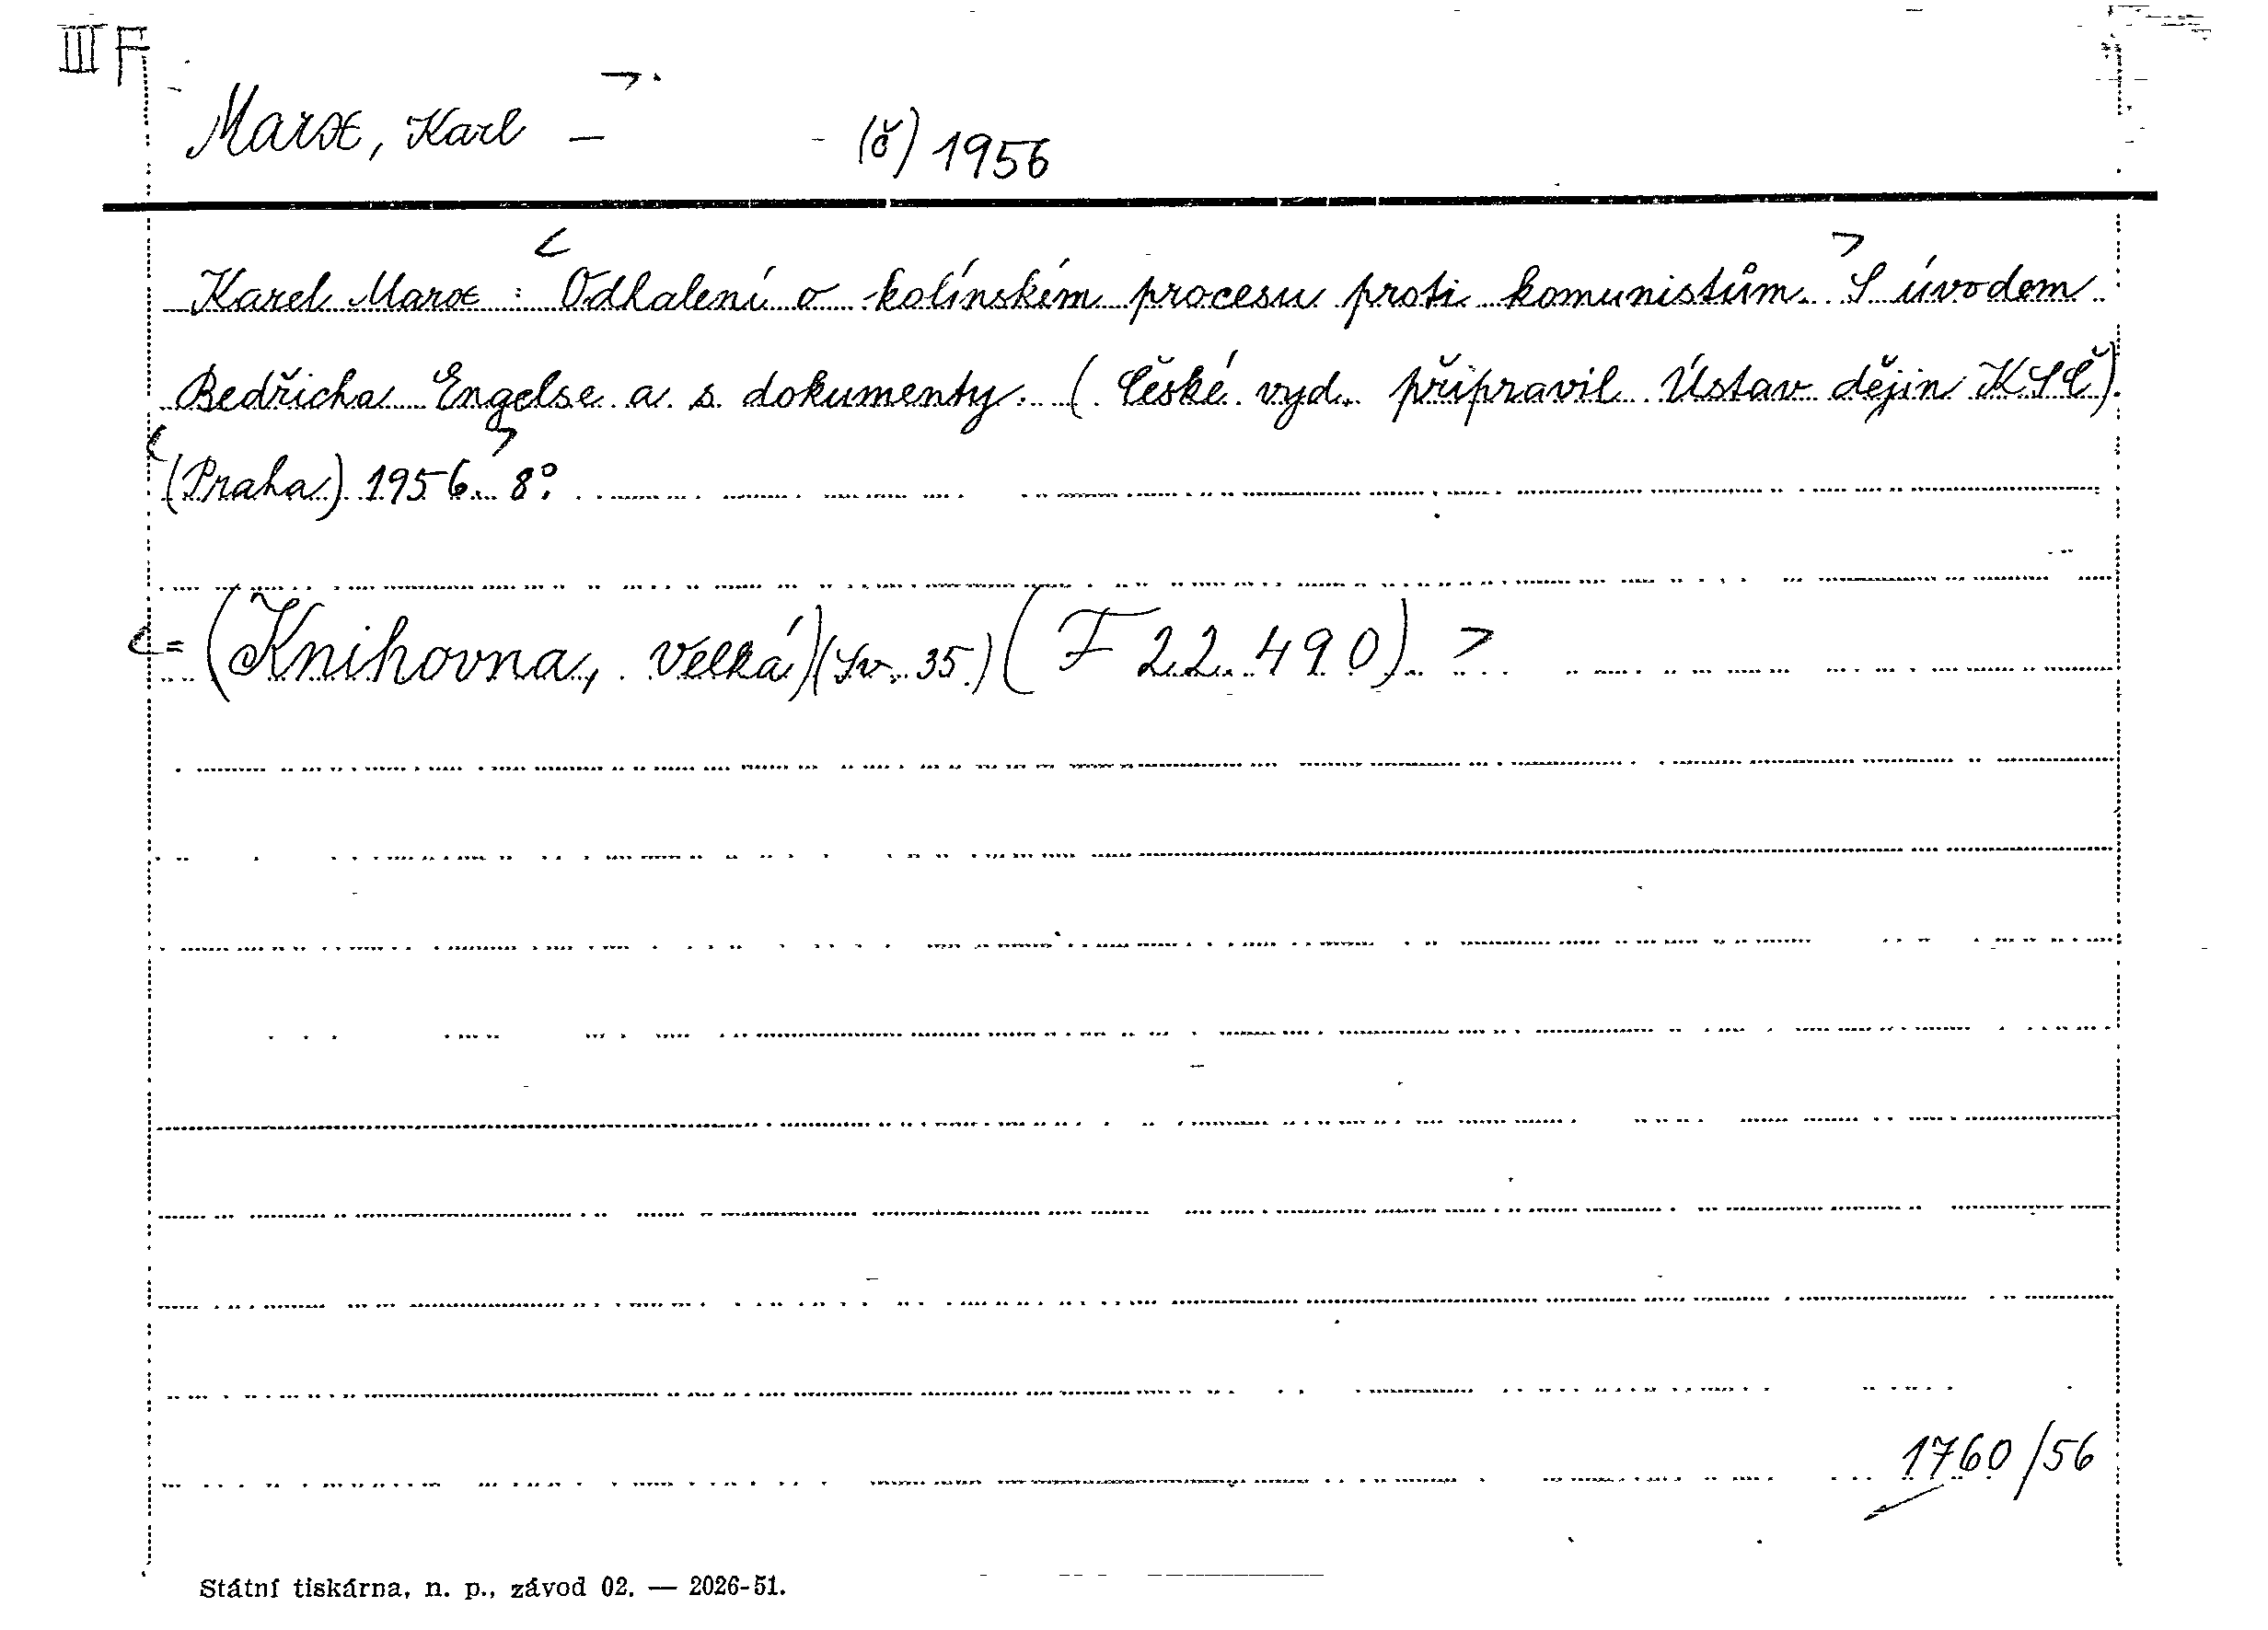 III F
Marx, Karl — - (č) 1956
Karel Marx: <Odhalení o kolínském procesu proti komunistům.> S úvodem
Bedřicha Engelse a s dokumenty. (České vyd. připravil Ústav dějin KSČ).
<(Praha) 1956.> 8°.
<= (Knihovna, Velká) (Sv. 35.) (F 22.490).>
1760/56
Státní tiskárna, n. p., závod 02. — 2026-51.